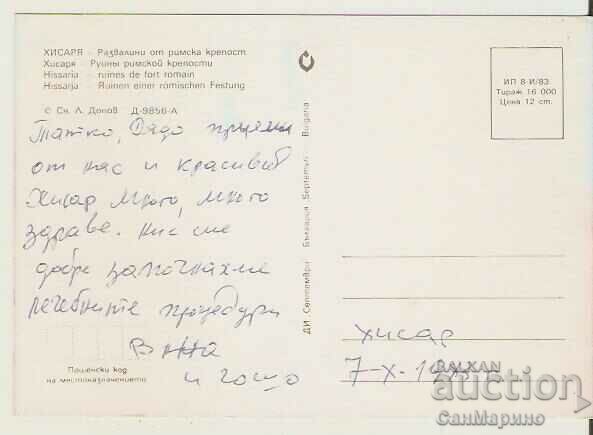 ХИСАРЯ - Развалини от римска крепост
Хисаря - Руины римской крепости
Hissaria - ruines de fort romain
Hissarja - Ruinen einer römischen Festung
© Сн. Л. Допов Д-9856-А
ИП 8-И/83
Тираж 16 000
Цена 12 ст.
Татко, Дядо приеми
от нас и красивия
Хисар много, много
здраве. Ние сме
добре започнахме
лечебните процедури
и Гошо
ДИ „Септември“ България Bulgaria
Пощенски код
на местоназначението
Хисар
7-X-
BALKAN
auction
СанМарино